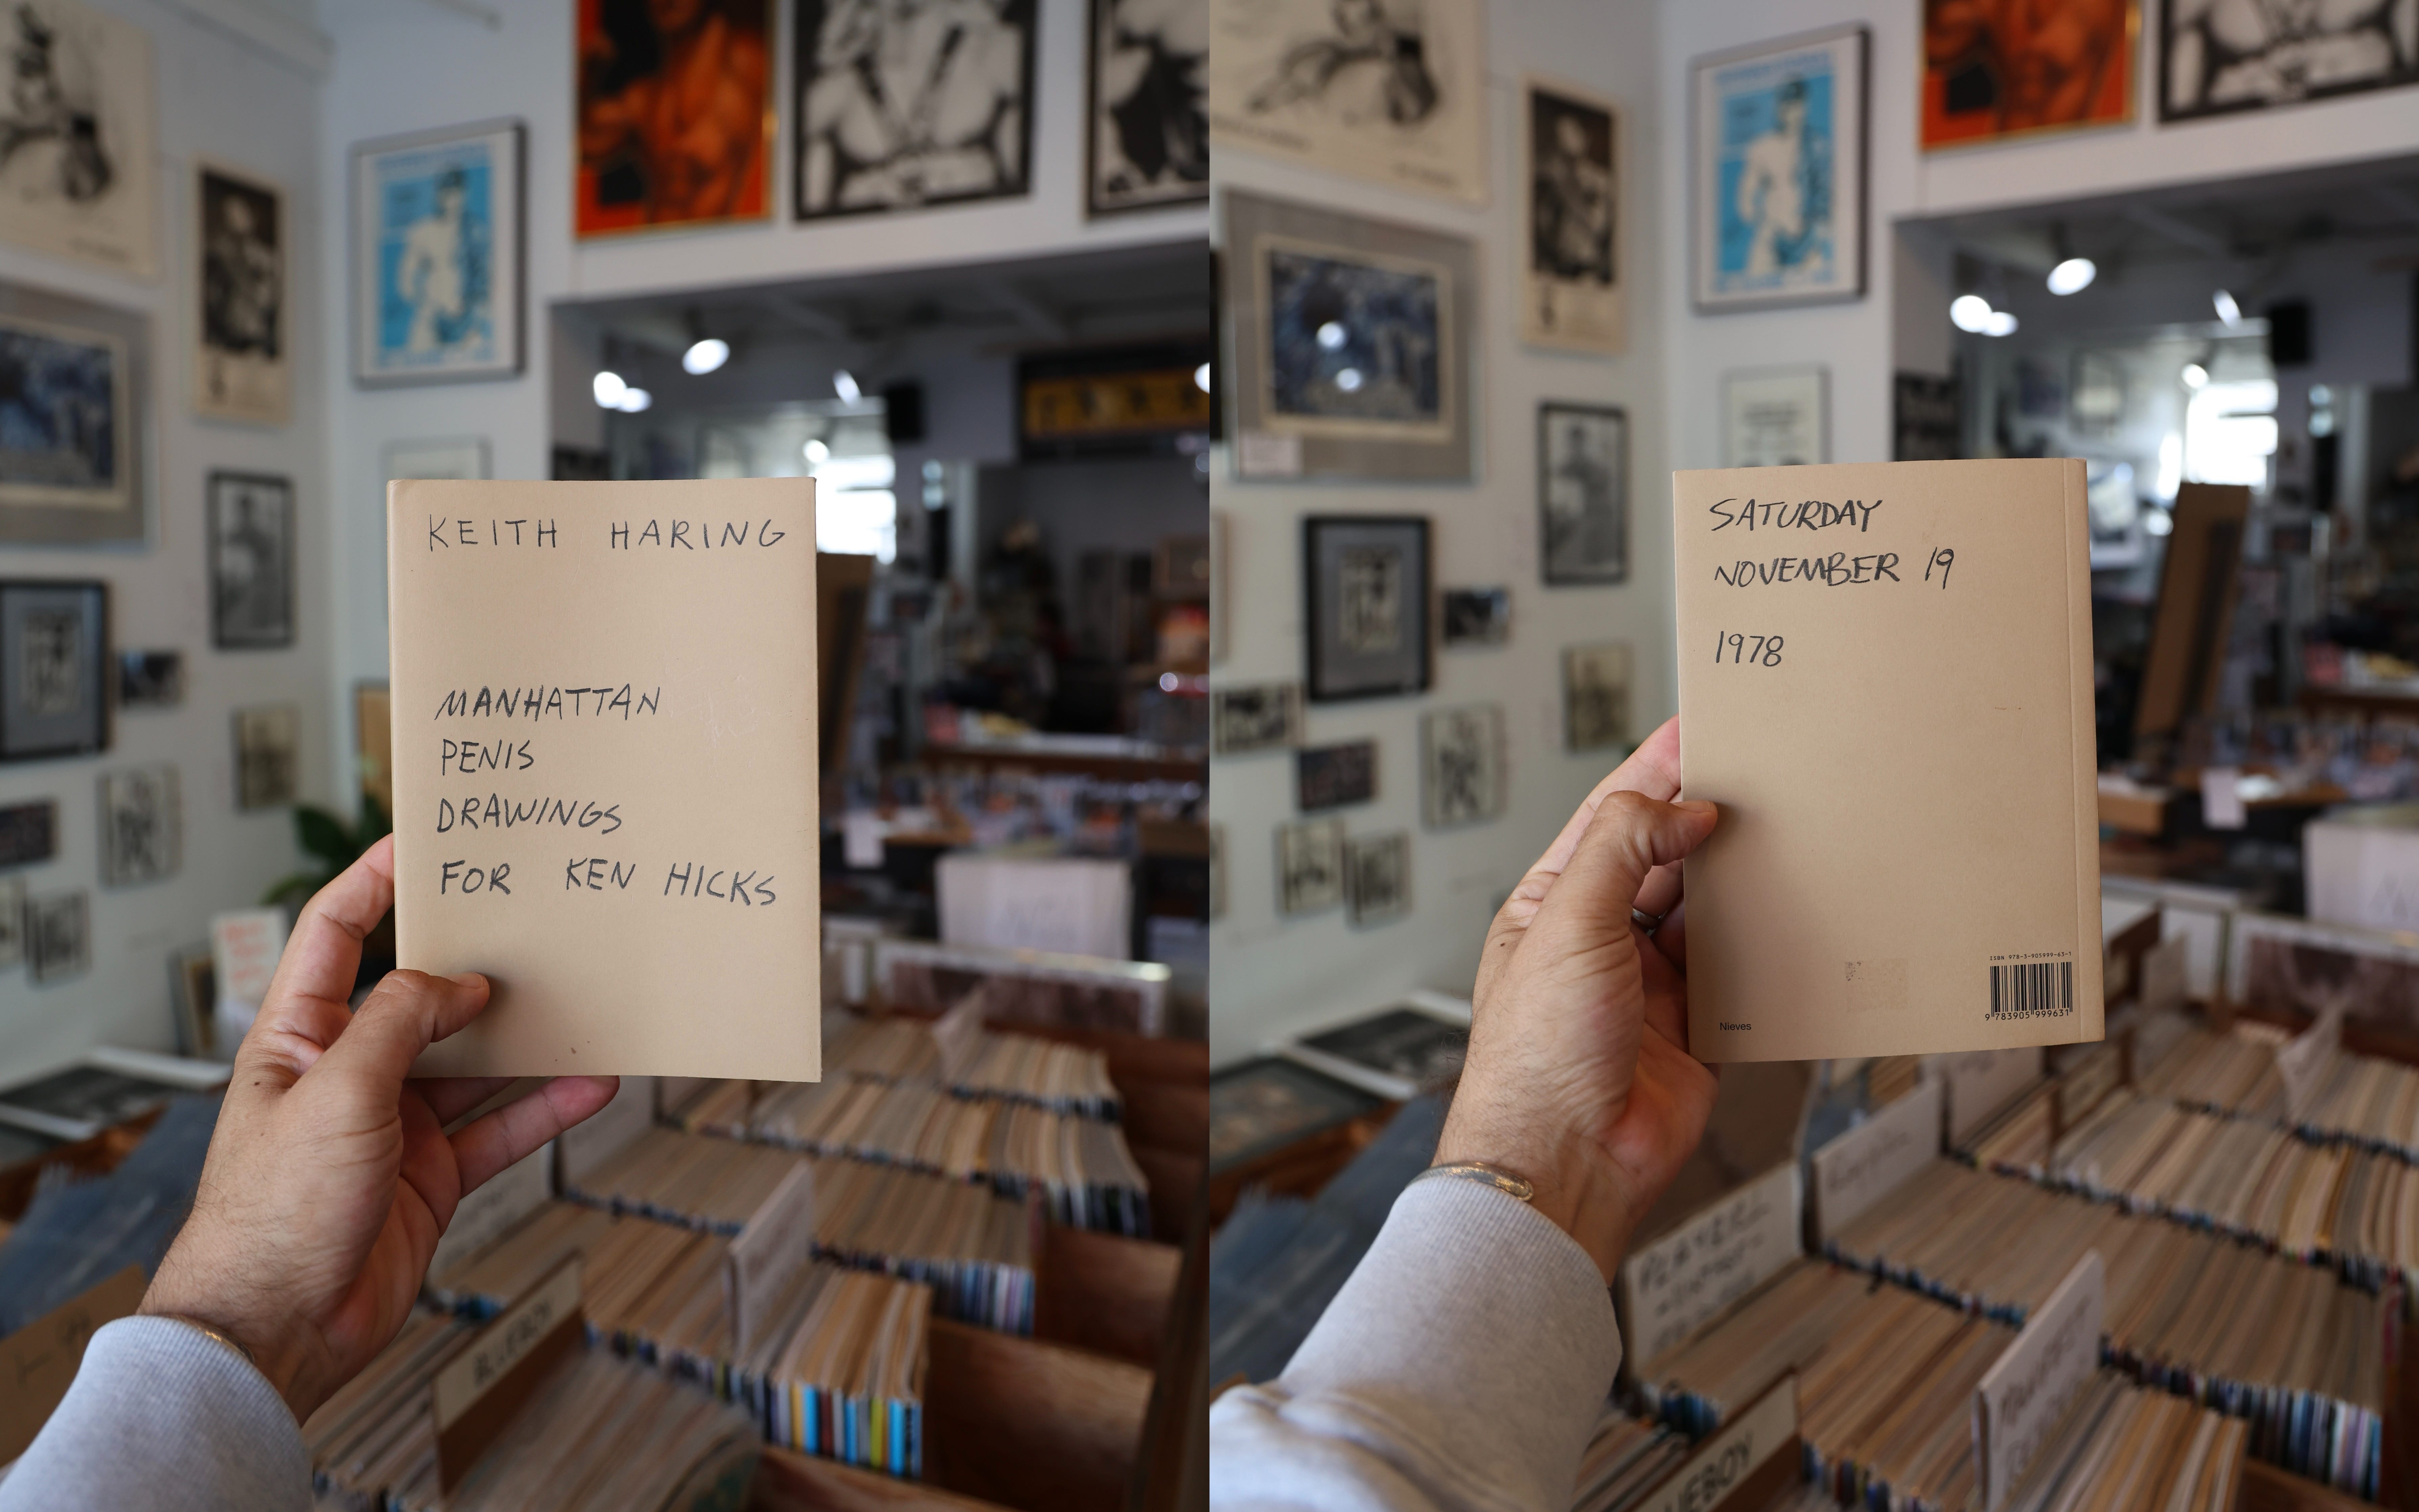 KEITH HARING
MANHATTAN
PENIS
DRAWINGS
FOR KEN HICKS
BLUEBOY
SATURDAY
NOVEMBER 19
1978
ISBN 978-3-905999-63-1
9 783905 999631
Nieves
PLAYGIRL